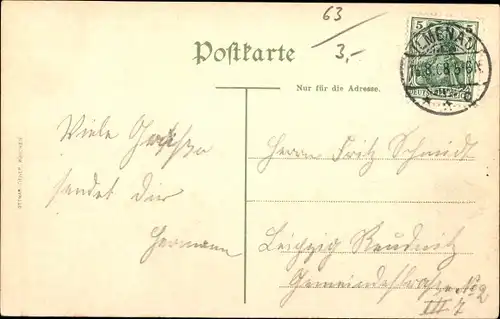 63
3,-
5 5
ILMENAU
Postkarte
Nur für die Adresse.
Viele Grüße
sendet Dir
Hermann
Herrn Fritz Schmidt
Leipzig Reudnitz
Gemeindestraße No 2
III